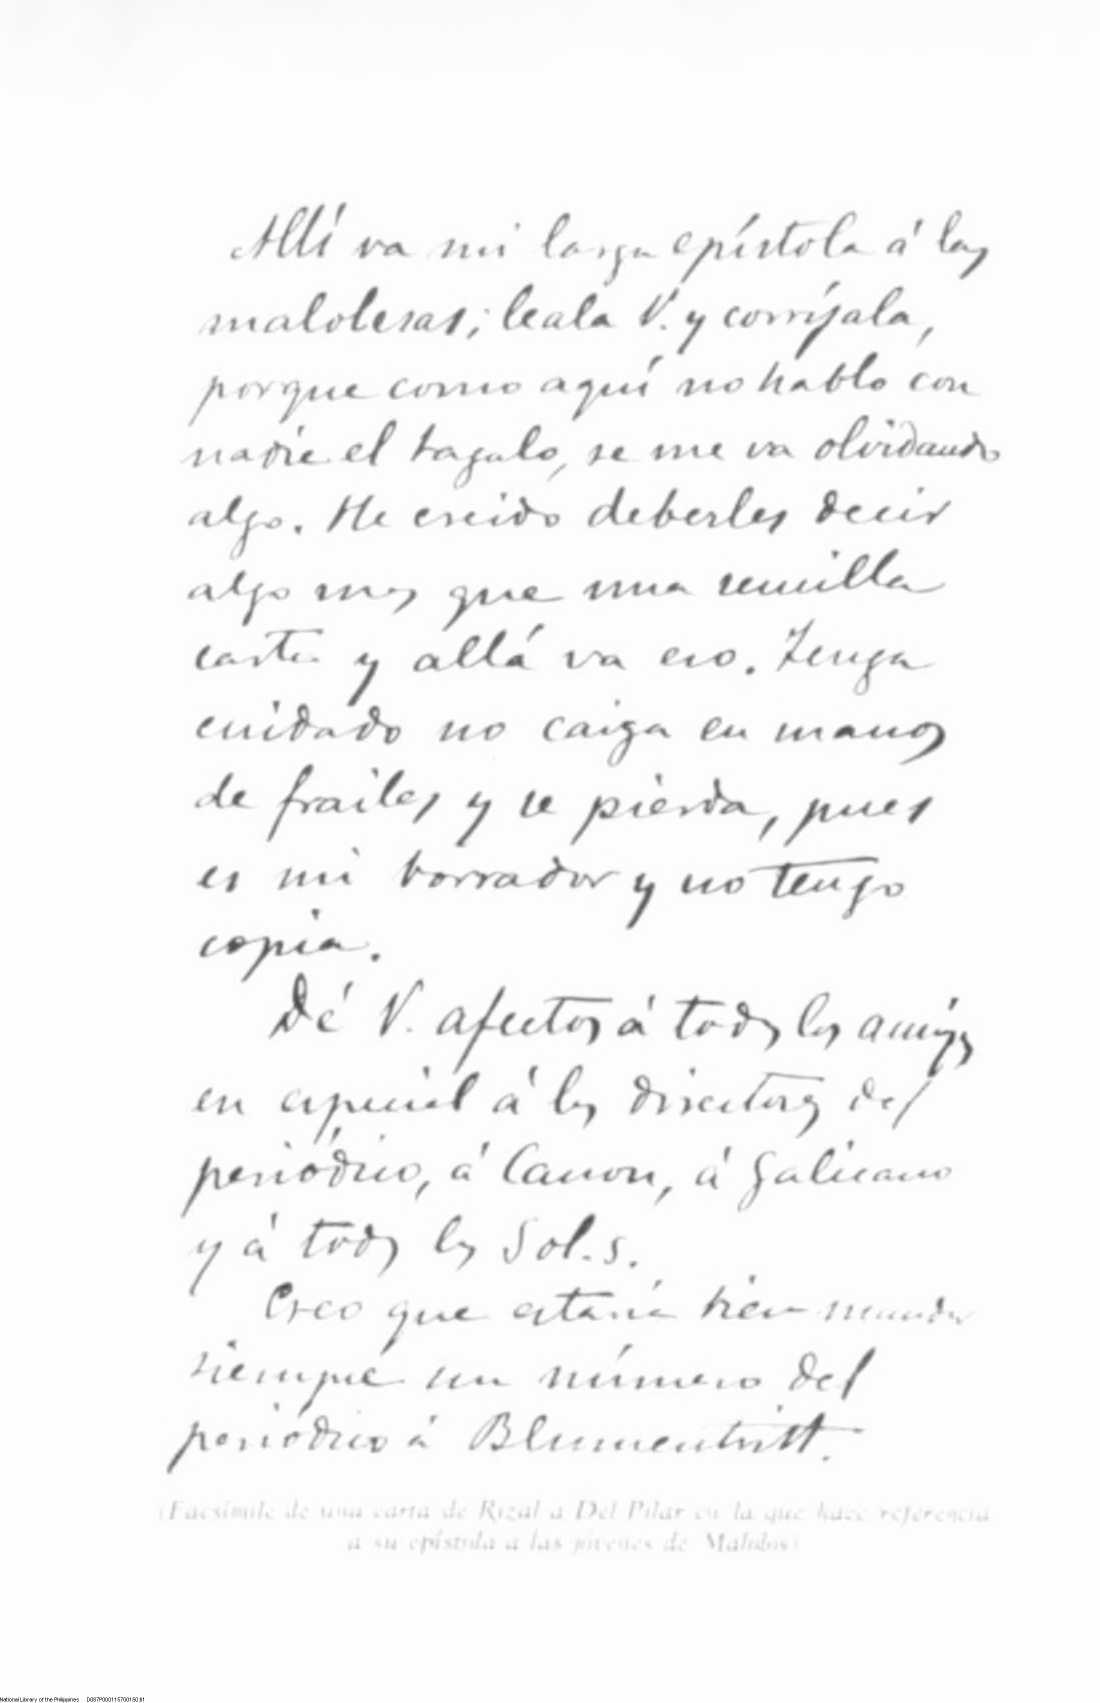 Allí va mi larga epístola á las
malolesas; leala V. y corríjala,
porque como aquí no hablo con
nadie el tagalo, se me va olvidando
algo. He creido deberles decir
algo mas que una sencilla
carta y allá va eso. Tenga
cuidado no caiga en manos
de frailes y se pierda, pues
es mi borrador y no tengo
copia.
Dé V. afectos á todos los amigos
en especial á los directores del
periódico, á Canon, á Galicano
y á todos los Sol.s.
Creo que estaria bien mandar
siempre un número del
periódico á Blumentritt.
(Facsímile de una carta de Rizal a Del Pilar en la que hace referencia
a su epístola a las jóvenes de Malolos)
National Library of the Philippines D087P000115700150.tif